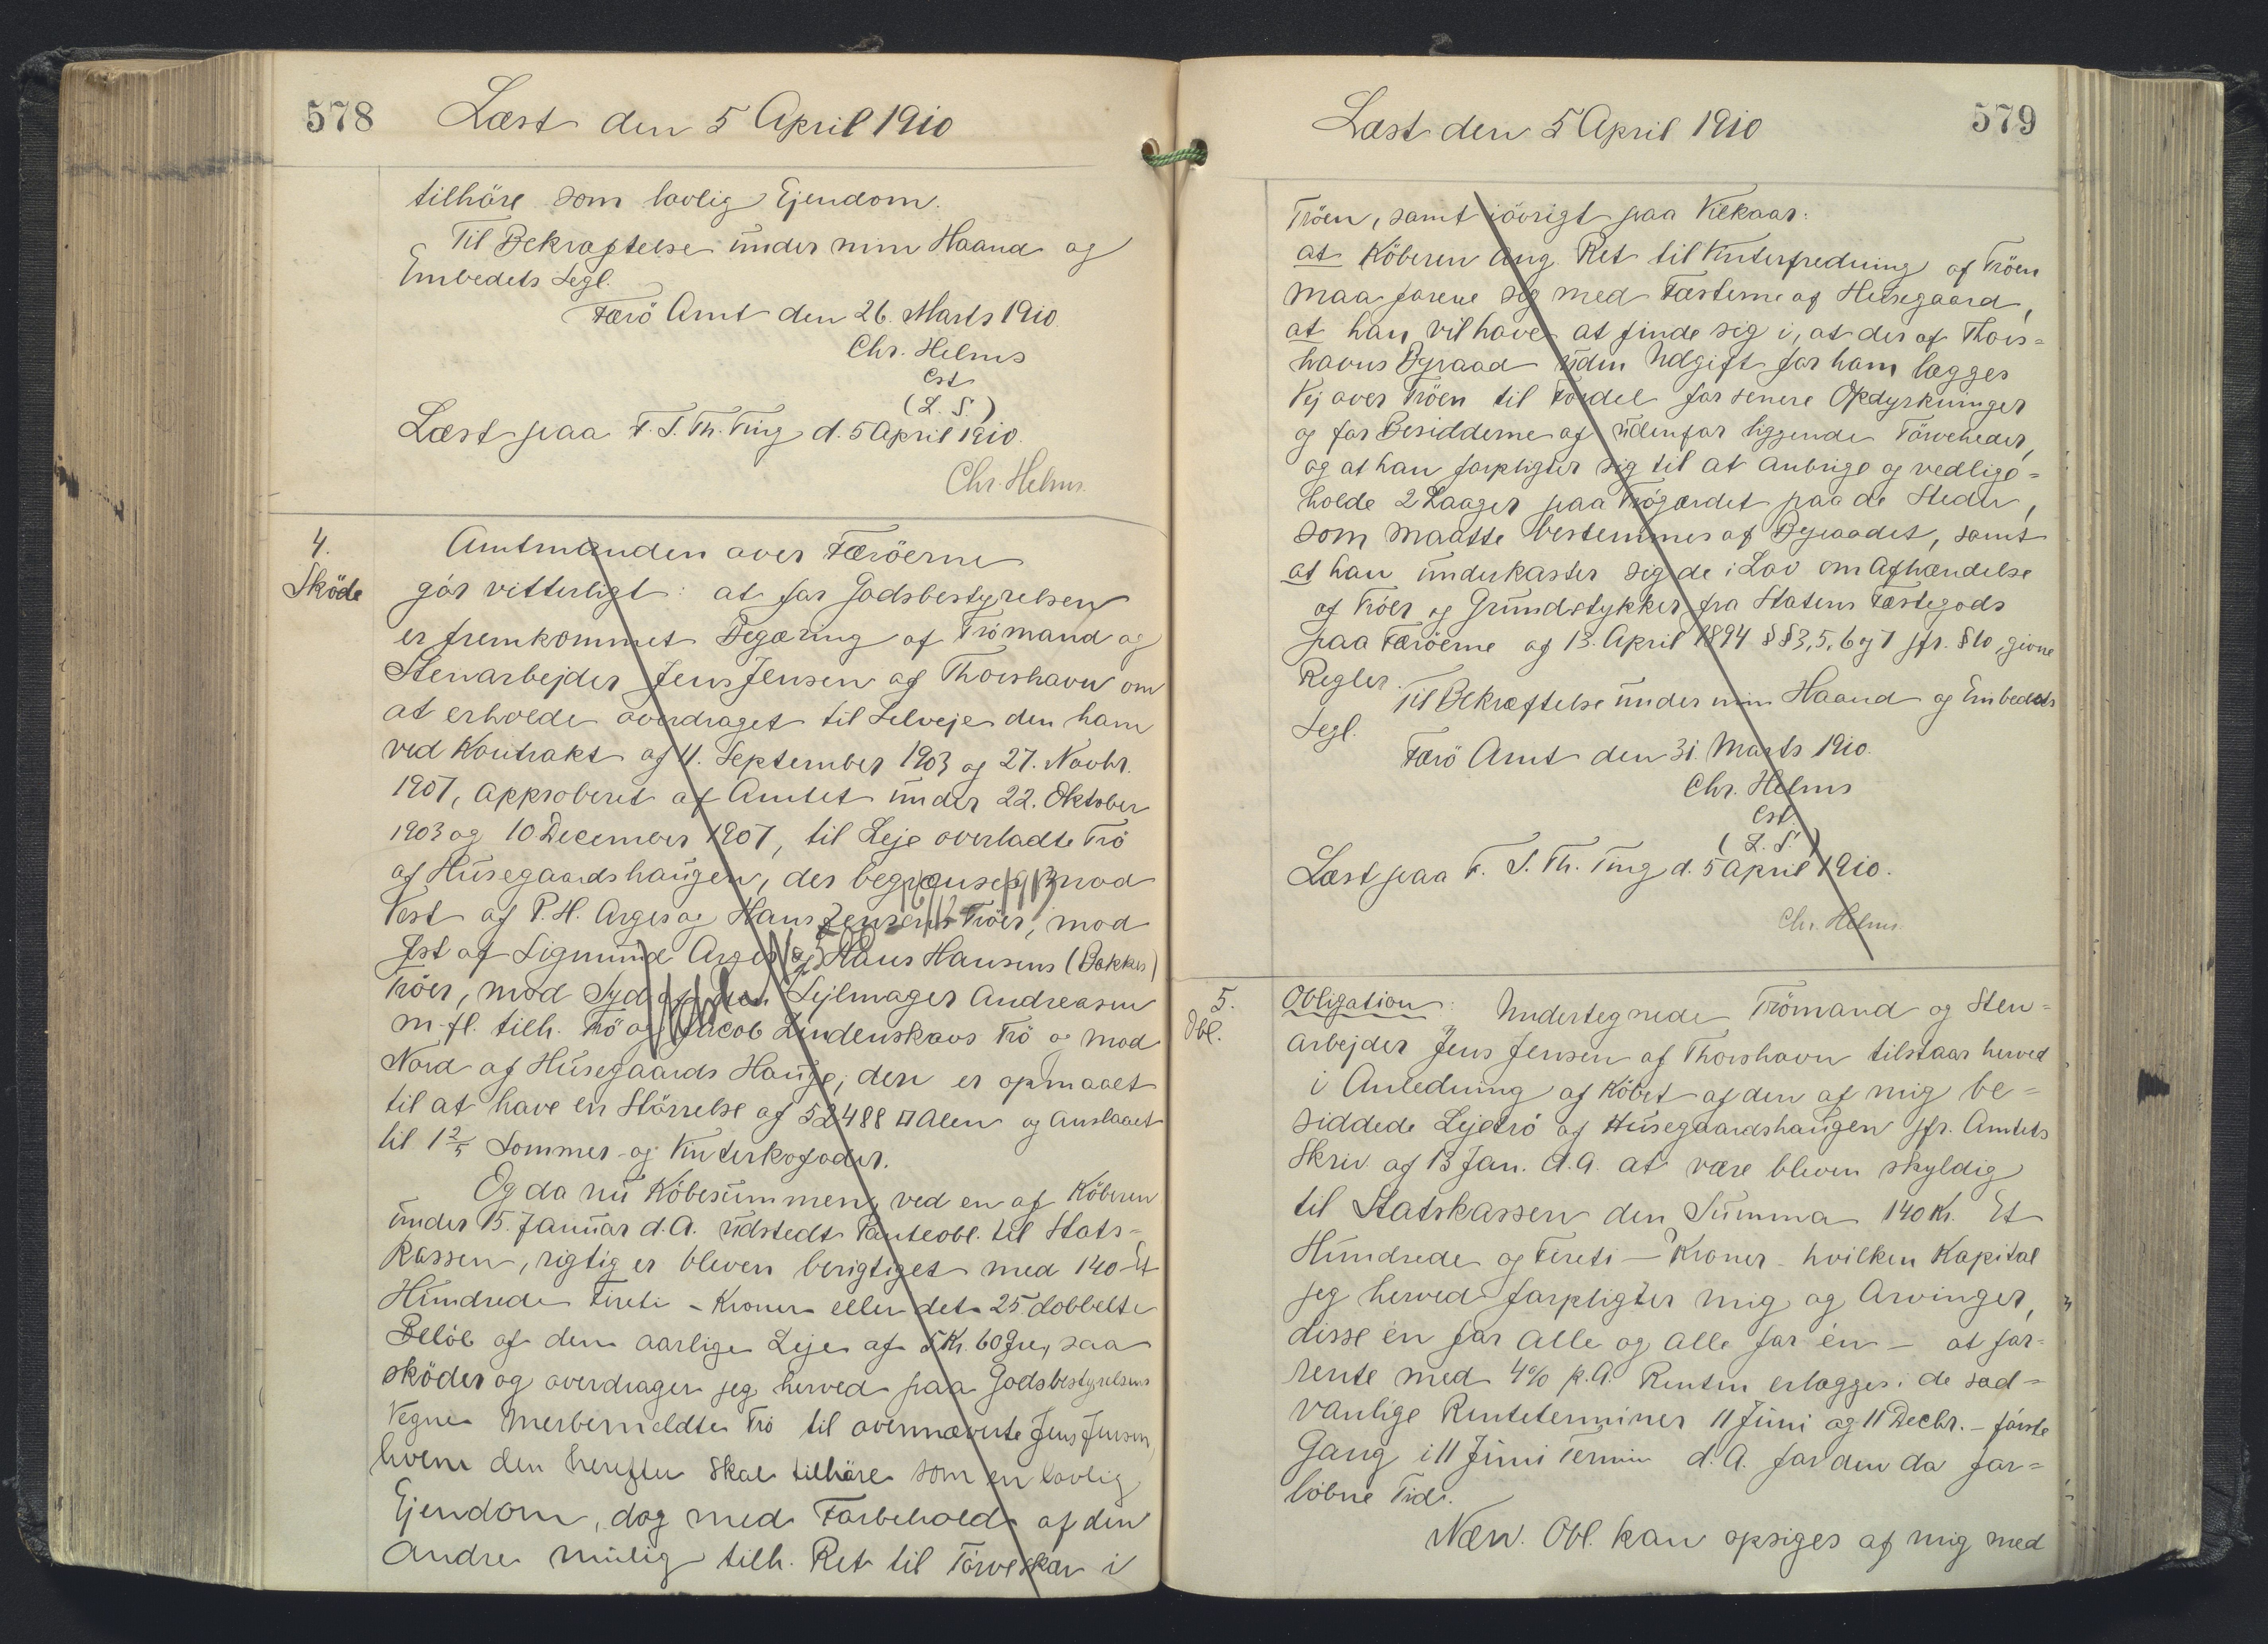 578 Læst den 5 April 1910
tilhöre som lovlig Ejendom.
Til Bekræftelse under min Haand og
Embedets Segl.
Færö Amt den 26. Marts 1910
Chr. Helms
Cst
(L. S.)
Læst paa F. S. Th. Ting d. 5 April 1910.
Chr. Helms.
4.
Sköde
Amtmanden over Færöerne
gör vitterligt: at for Godsbestyrelsen
er fremkommet Begæring af Trömand og
Stenarbejder Jens Jensen af Thorshavn om
at erholde overdraget til Selveje den ham
ved Kontrakt af 11. September 1903 og 27. Novbr.
1907, approberet af Amtet under 22. Oktober
1903 og 10 December 1907, til Leje overladte Trö
af Husegaardshaugen, der begrænses mod
Vest af P. H. Arges og Hans Jensens Tröer, mod
Øst af Sigmund Arges og Hans Hansens (Bakker)
Tröer, mod Syd af den Sejlmager Andreasen
m. fl. tilh. Trö og Jacob Lindenskovs Trö og mod
Nord af Husegaards Hauge, den er opmaalt
til at have en Störrelse af 52488 □ Alen og anslaaet
til 1 2/5 Sommer- og Vinterkofoder.
Og da nu Köbesummen, ved en af Köberen
under 15. Januar d.A. udstedt Panteobl. til Stats-
kassen, rigtig er bleven berigtiget med 140 Et
Hundrede Fireti - Kroner eller det 25 dobbelte
Belöb af den aarlige Leje af 5 Kr. 60 Øre, saa
sköder og overdrager jeg herved paa Godsbestyrelsens
Vegne merbemeldte Trö til ovennævnte Jens Jensen,
hvem den herefter skal tilhöre som en lovlig
Ejendom, dog med Forbehold af den
Andre mulig tilh. Ret til Törveskær i
Læst den 5 April 1910 579
Tröen, samt iövrigt paa Vilkaar:
at Köberen ang. Ret til Vinterfredning af Tröen
maa forene sig med Fæsterne af Husegaard,
at han vil have at finde sig i, at der af Thors-
havns Byraad uden Udgift for ham lægges
Vej over Tröen til Fordel for senere Opdyrkninger
og for Besidderne af udenfor liggende Törveheder,
og at han forpligter sig til at anbringe og vedlige-
holde 2 Laager paa Trögærdet paa de Steder,
som maatte bestemmes af Byraadet, samt
at han underkaster sig de i Lov om Afhændelse
af Tröer og Grundstykker fra Statens Fæstegods
paa Færöerne af 13. April 1894 §§ 3, 5, 6 og 7 jfr. § 10, givne
Regler.
Til Bekræftelse under min Haand og Embedets
Segl.
Færö Amt den 31 Marts 1910.
Chr. Helms
Cst.
(L. S.)
Læst paa F. S. Th. Ting d. 5 April 1910.
Chr. Helms.
5.
Obl.
Obligation: Undertegnede Trömand og Sten-
arbejder Jens Jensen af Thorshavn tilstaar herved
i Anledning af Köbet af den af mig be-
siddede Lejetrö af Husegaardshaugen jfr. Amtets
Skriv. af 13 Jan. d.A. at være bleven skyldig
til Statskassen den Summa 140 Kr. Et
Hundrede og Fireti - Kroner - hvilken Kapital
jeg herved forpligter mig og Arvinger,
disse én for alle og alle for én - at for-
rente med 4% p.A. Renten erlægges i de sæd-
vanlige Renteterminer 11 Juni og 11 Decbr. - förste
Gang i 11 Juni Termin d.A. for den da for-
löbne Tid.
Næv. Obl. kan opsiges af mig med